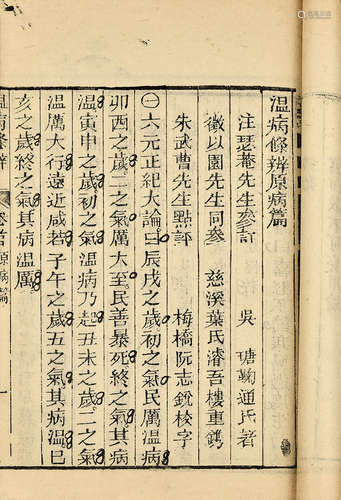 溫病條辨原病篇
汪瑟菴先生參訂　吳　瑭鞠通氏著
徵以園先生同參　慈溪葉氏濬吾樓重鐫
朱武曹先生點評　梅橋阮志銳校字
㊀六元正紀大論曰辰戌之歲初之氣民厲溫病
卯酉之歲二之氣厲大至民善暴死終之氣其病
溫寅申之歲初之氣溫病乃起丑未之歲二之氣
溫厲大行遠近咸若子午之歲五之氣其病溫巳
亥之歲終之氣其病溫厲
溫病條辨　卷首原病篇　一